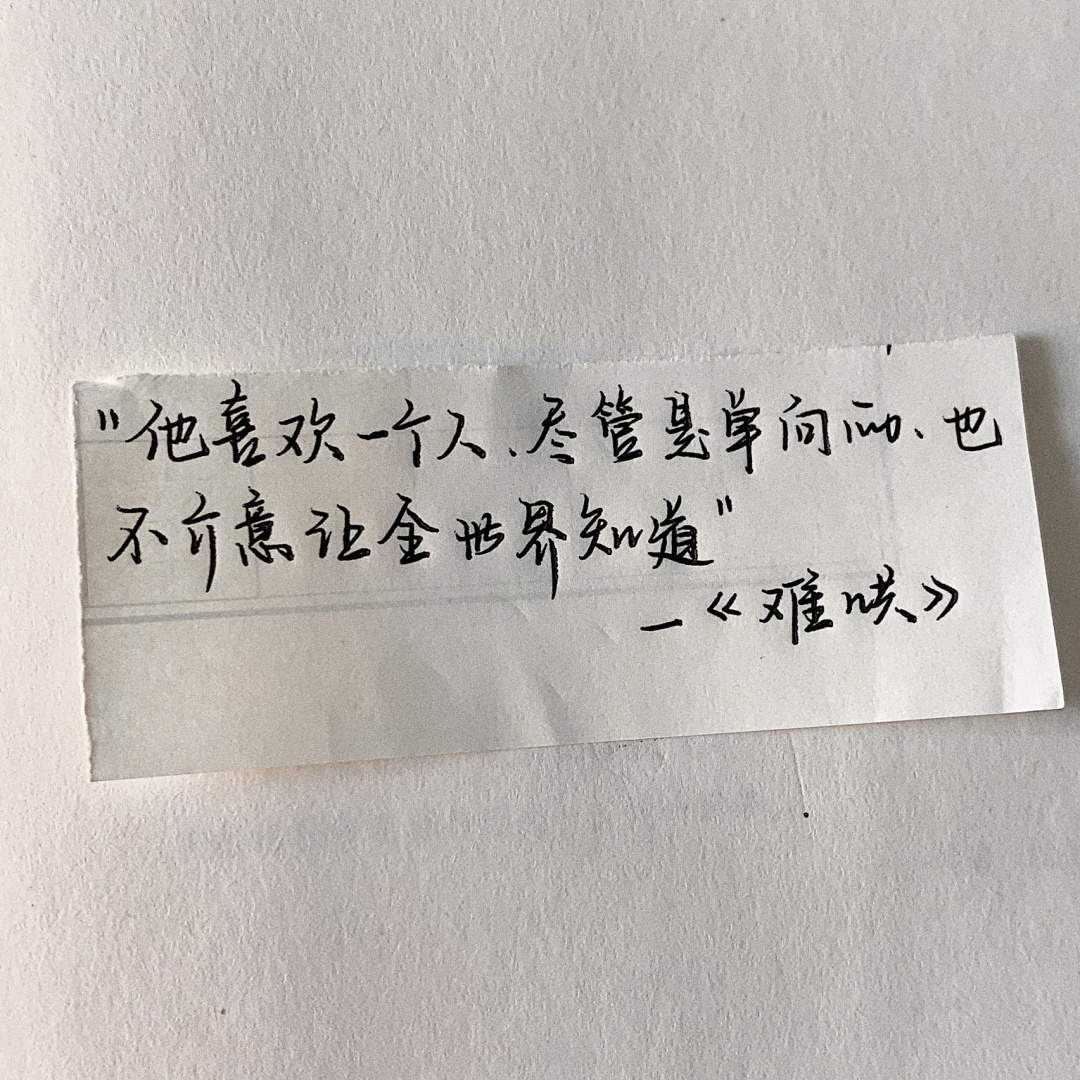 "他喜欢一个人、尽管是单向而动、也
不介意让全世界知道"
—《难哄》